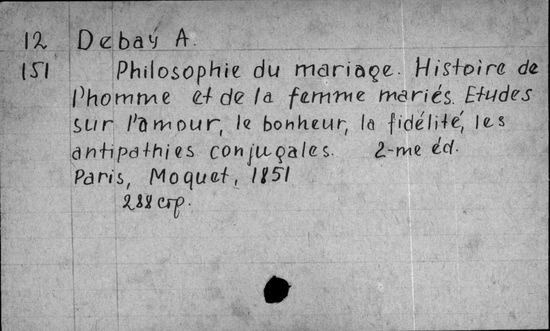 12 Debaÿ A.
151 Philosophie du mariage. Histoire de
l'homme et de la femme mariés. Etudes
sur l'amour, le bonheur, la fidélité, les
antipathies conjugales. 2-me éd.
Paris, Moquet, 1851
288 стр.